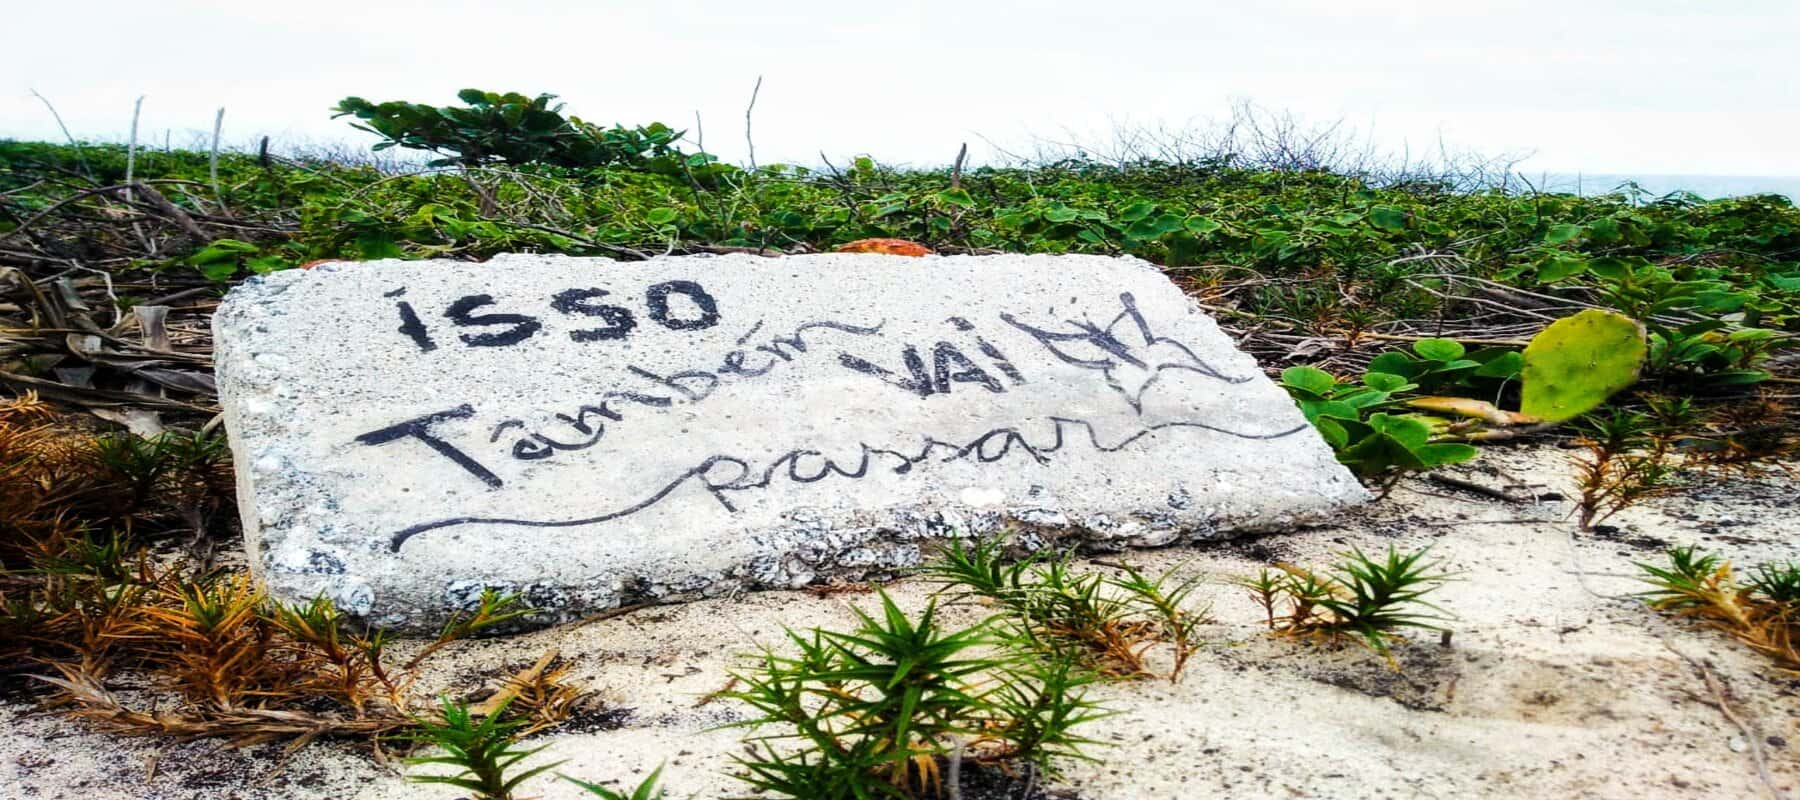 isso
Tâmbém vai
passar